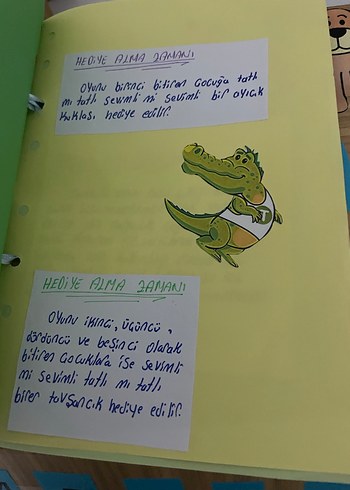 HEDİYE ALMA ZAMANI
Oyunu birinci bitiren çocuğa tatlı
mı tatlı sevimli mi sevimli bir ayıcık
kuklası hediye edilir.
HEDİYE ALMA ZAMANI
Oyunu ikinci, üçüncü,
dördüncü ve beşinci olarak
bitiren çocuklara ise sevimli
mi sevimli tatlı mı tatlı
birer tavşancık hediye edilir.